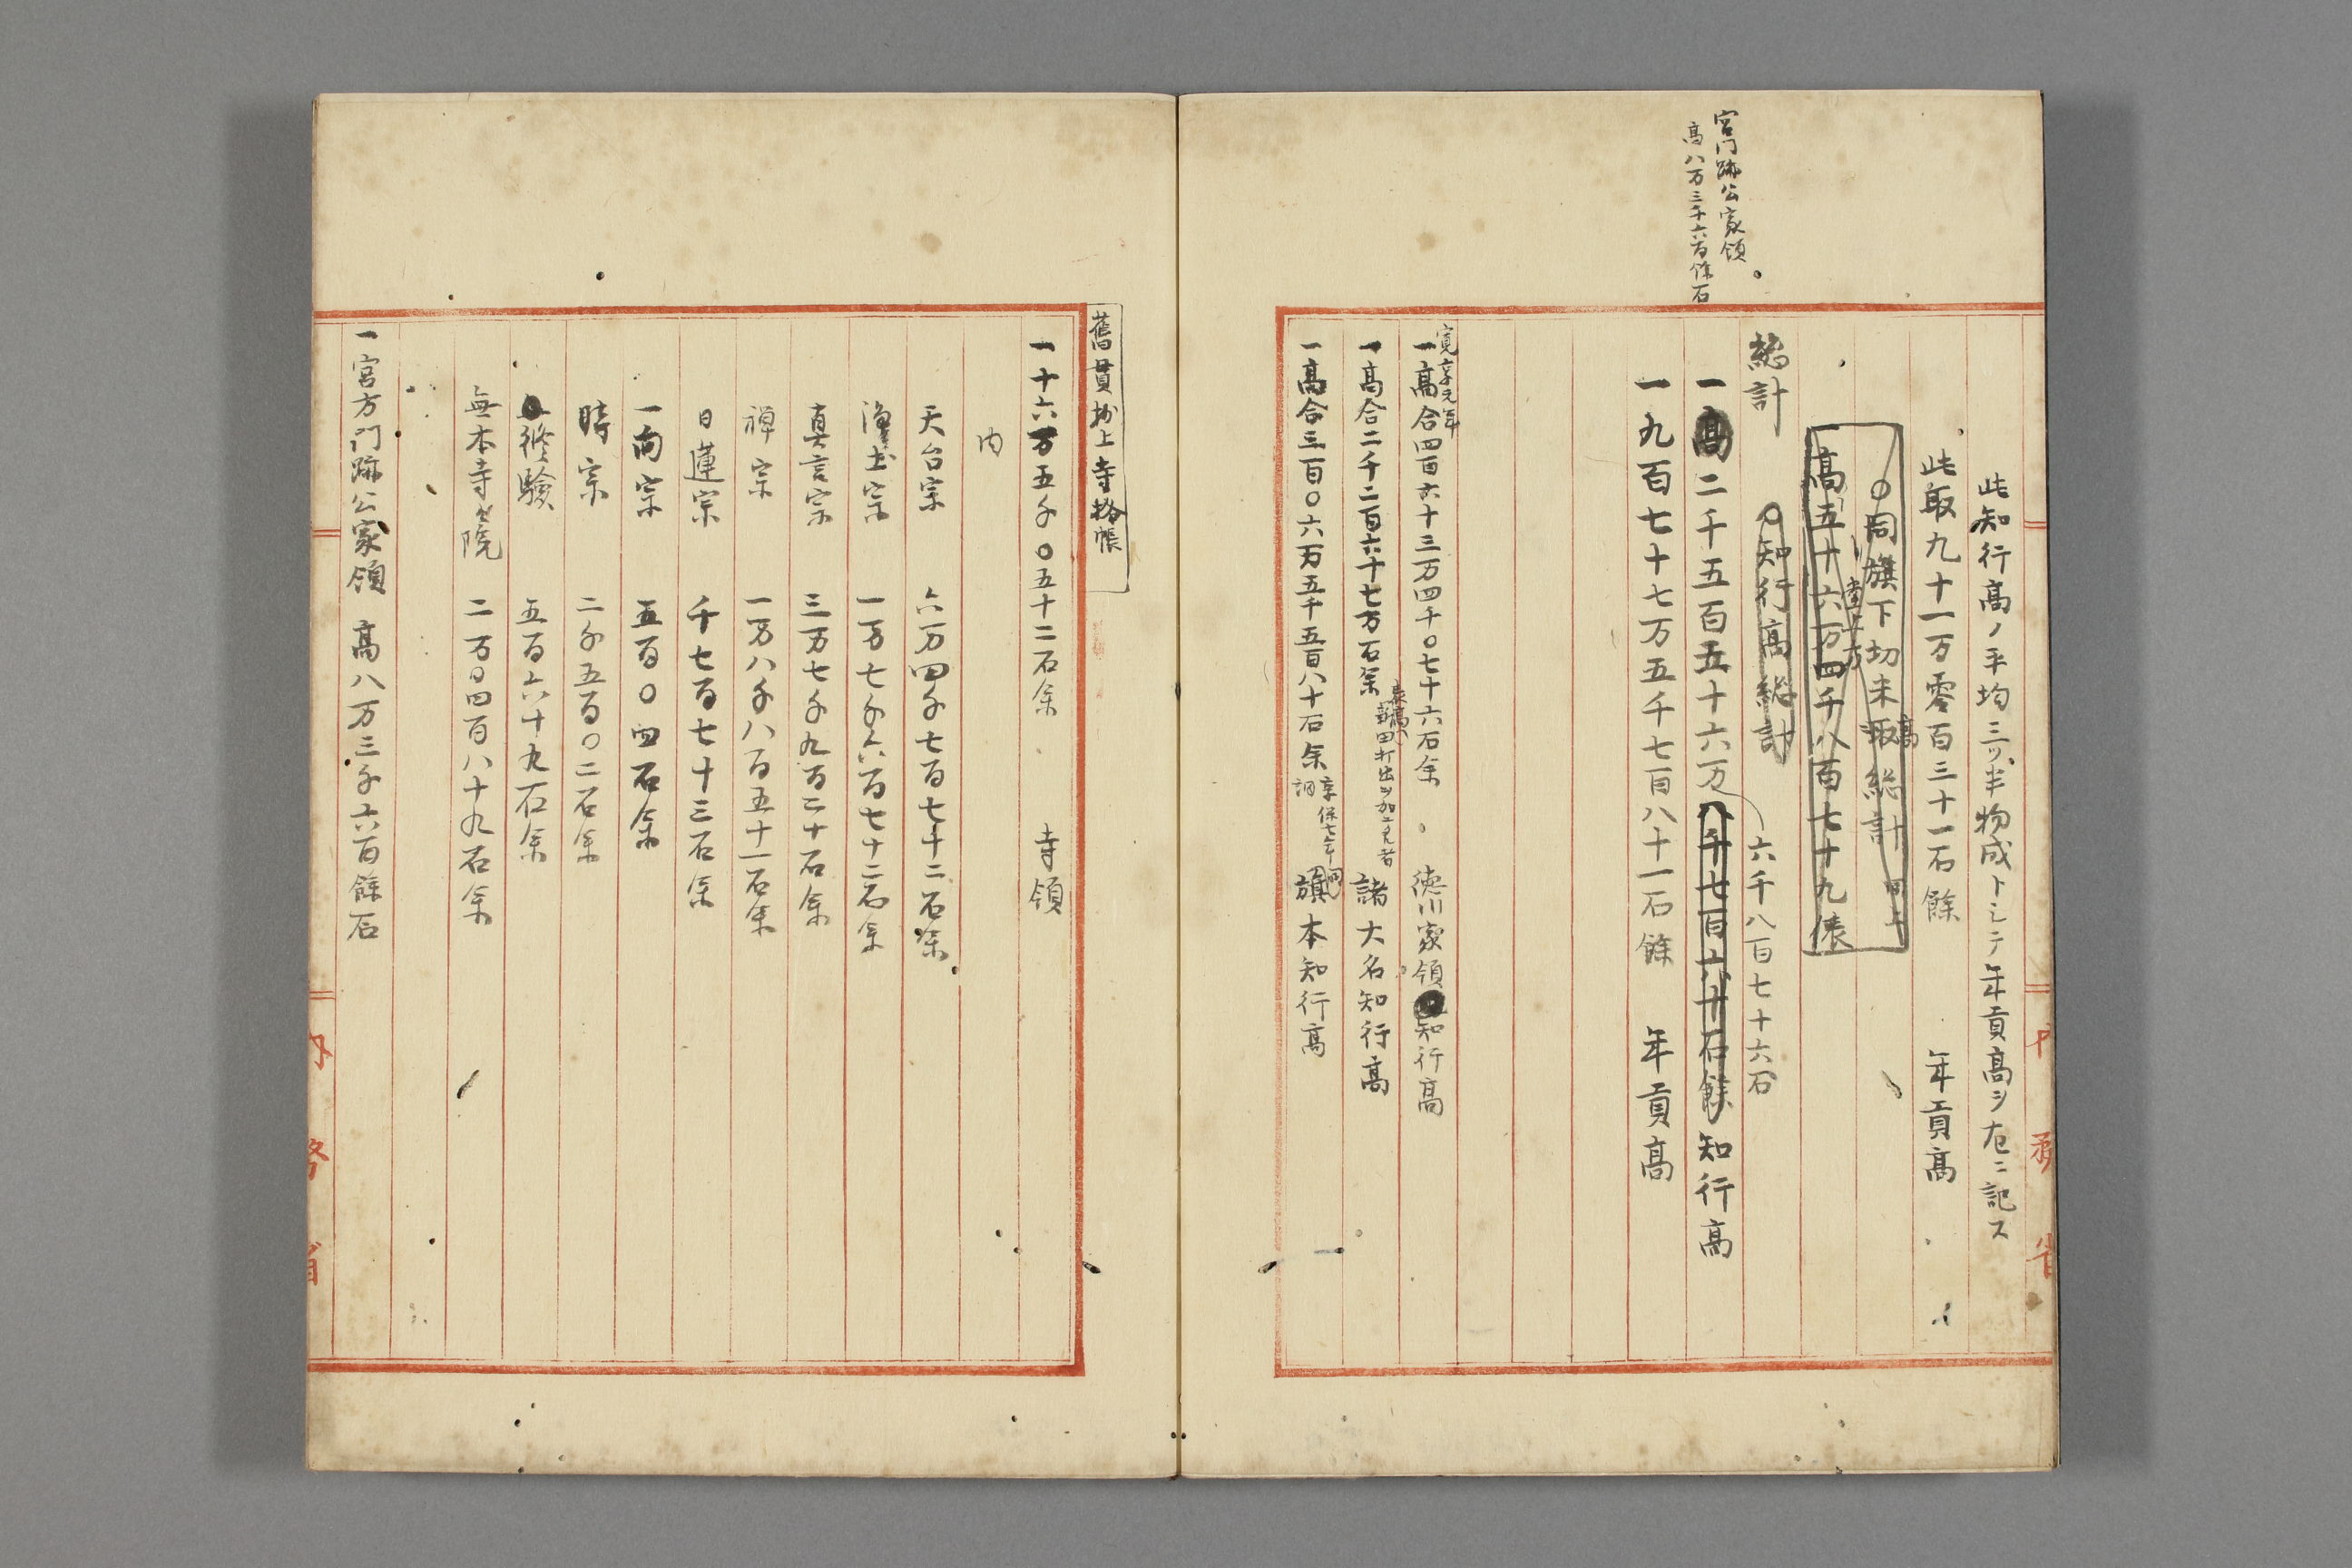 宮門跡公家領
高八万三千六百餘石
此知行高ノ平均三ツ半物成トシテ年貢高ヲ左ニ記ス
此取九十一万零百三十一石餘 年貢高
〇同旗下切米 高 総計 同上
高五十六万四千八百七十九俵
総計 〇知行高総計
六千八百七十六石
一高二千五百五十六万八千七百六十石餘知行高
一九百七十七万五千七百八十一石餘 年貢高
寛享元年
一高合四百六十三万四千〇七十六石余 徳川家領知行高
一高合二千二百六十七万石余 諸大名知行高
一高合三百〇六万五千五百八十石余 享保七年調 旗本知行高
内務省
舊貫抄上寺格帳
一十六万五千〇五十二石余 寺領
内
天台宗 六万四千七百七十二石余
浄土宗 一万七千六百七十二石余
真言宗 三万七千九百二十石余
禅宗 一万八千八百五十一石余
日蓮宗 千七百七十三石余
一向宗 五百〇四石余
時宗 二千五百〇二石余
修験 五百六十九石余
無本寺院 二万〇四百八十九石余
一宮方門跡公家領 高八万三千六百餘石
内務省